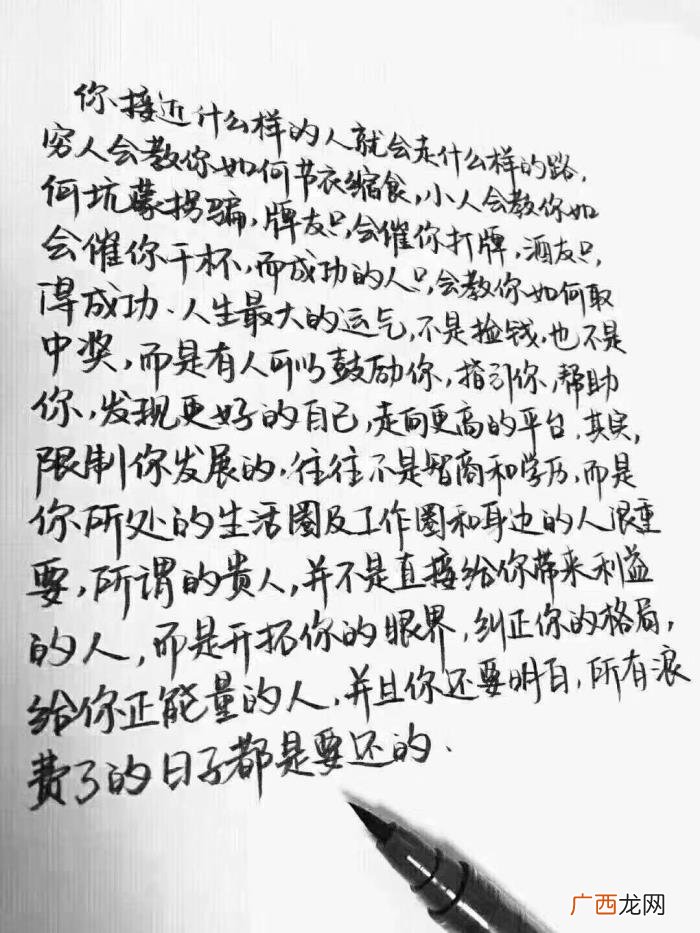 你接近什么样的人就会走什么样的路，
穷人会教你如何节衣缩食，小人会教你如
何坑蒙拐骗，牌友只会催你打牌，酒友只，
会催你干杯，而成功的人只，会教你如何取
得成功．人生最大的运气，不是捡钱，也不是
中奖，而是有人可以鼓励你，指引你，帮助
你，发现更好的自己，走向更高的平台．其实，
限制你发展的，往往不是智商和学历，而是
你所处的生活圈及工作圈和身边的人很重
要，所谓的贵人，并不是直接给你带来利益
的人，而是开拓你的眼界，纠正你的格局，
给你正能量的人，并且你还要明白，所有浪
费了的日子都是要还的．
广西龙网